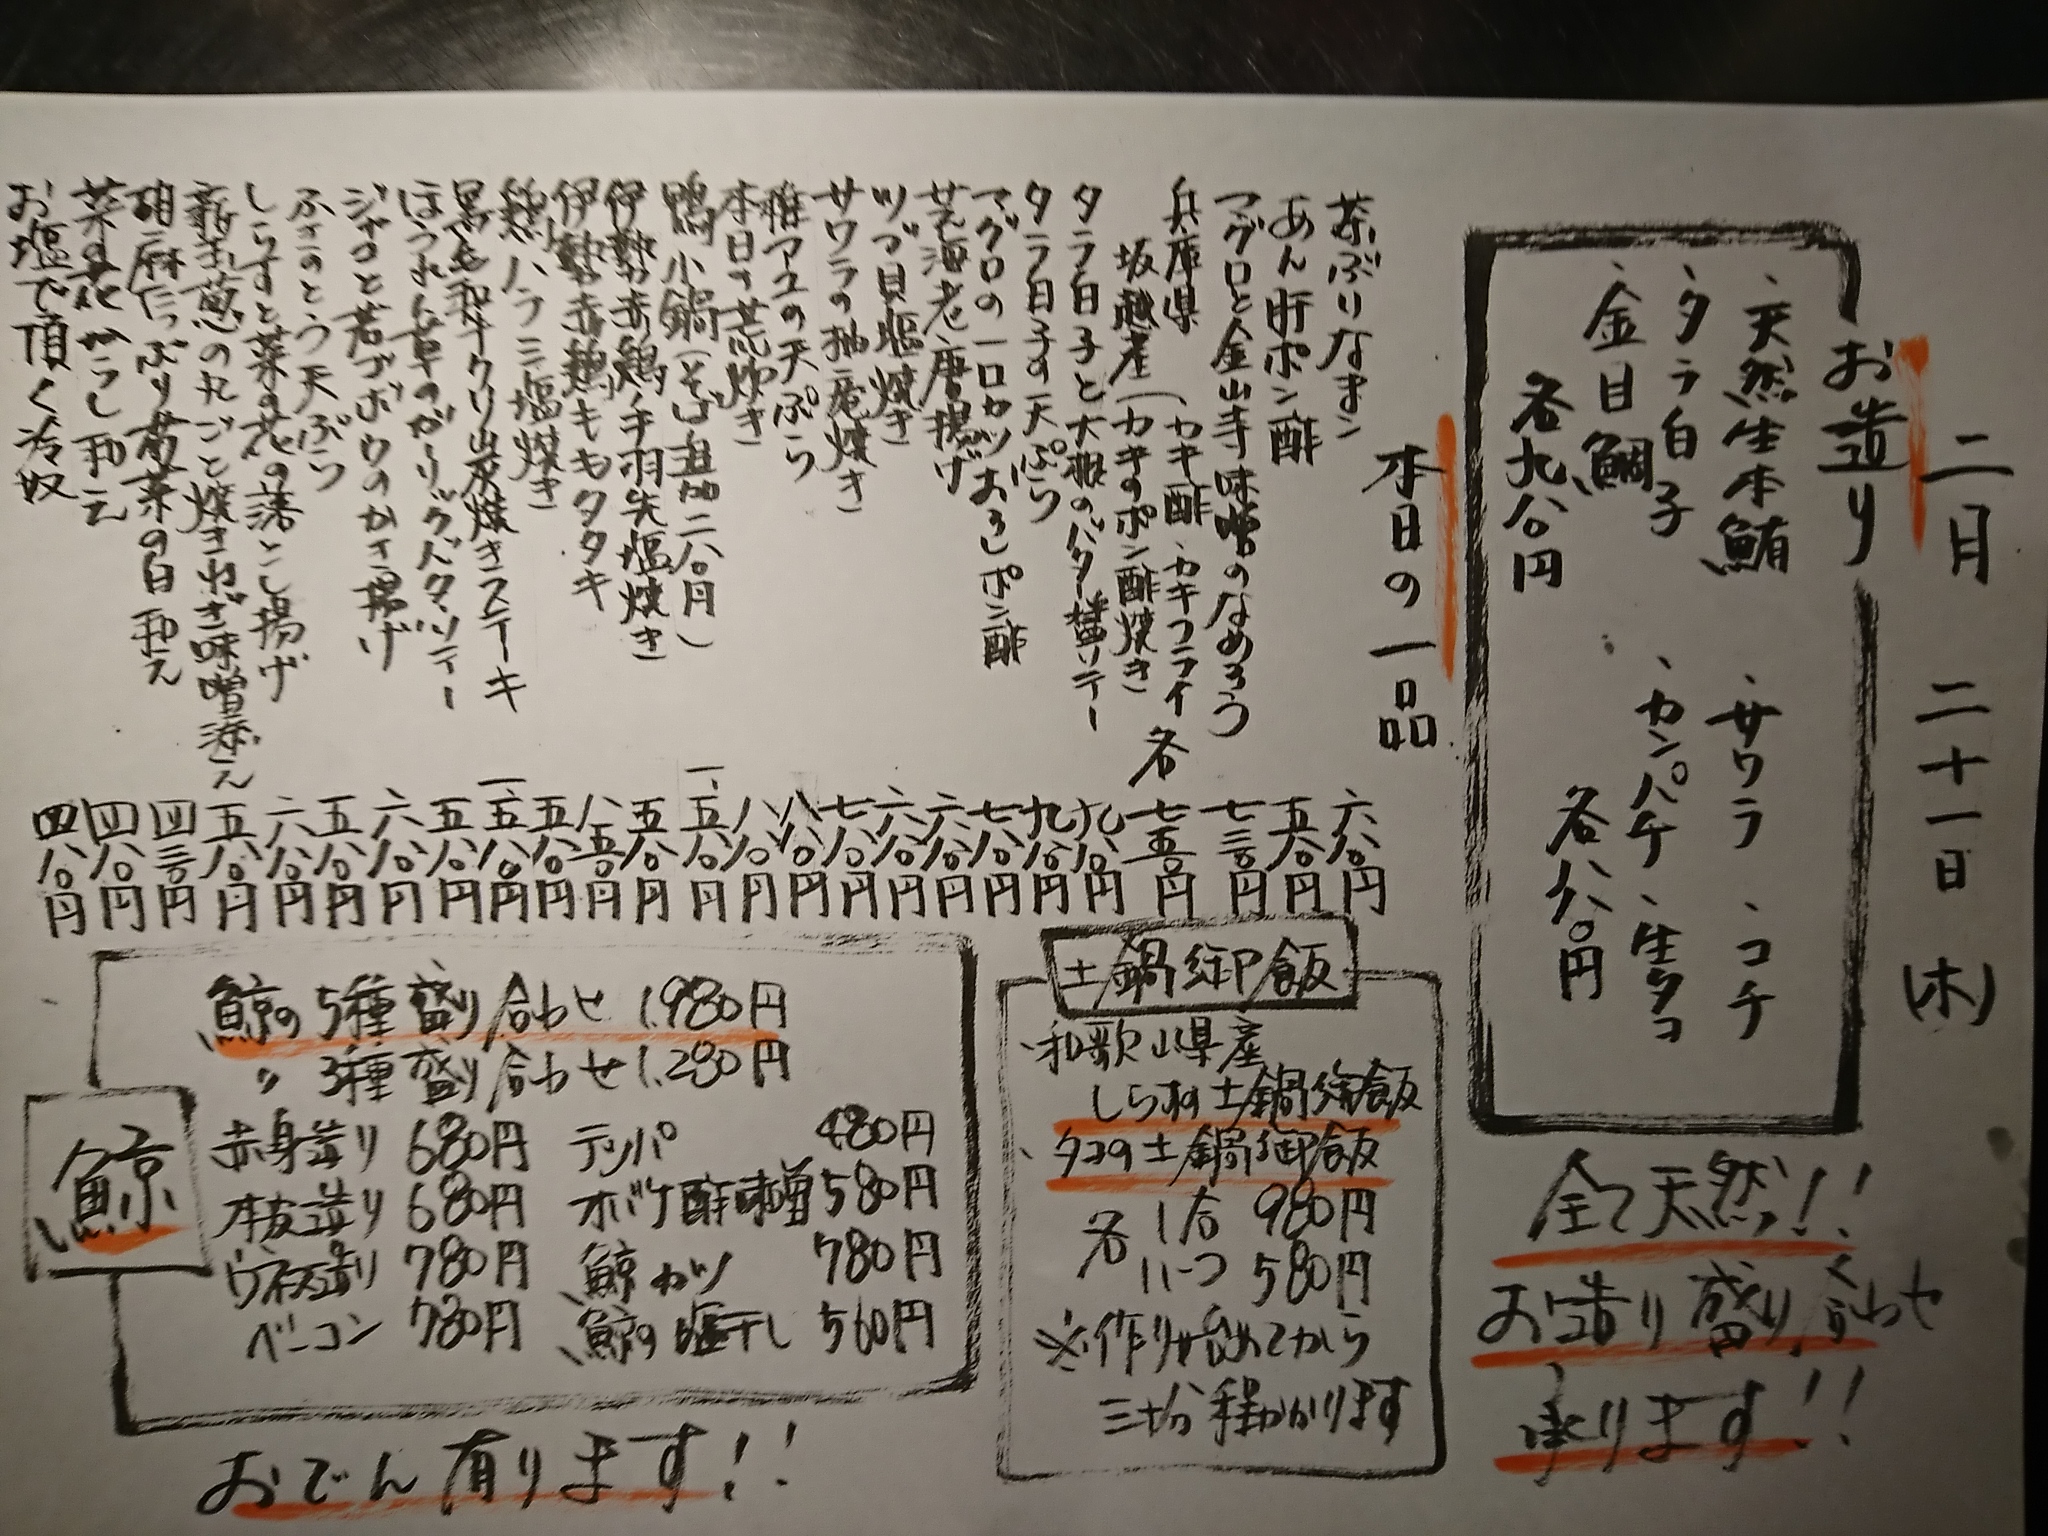 二月 二十一日 (木)
お造り
、天然生本鮪 、サワラ 、コチ
、タラ白子 、カンパチ 、生タコ
、金目鯛 各八八〇円
各九八〇円
全て天然!!
お造り盛り合わせ
承ります!!
本日の一品
茶ぶりなまこ 六八〇円
あん肝ポン酢 五八〇円
マグロと金山寺味噌のなめろう 七三〇円
兵庫県
坂越産(カキ酢、カキフライ
カキのポン酢焼き 各 七五〇円
タラ白子と大根のバター醤ソテー 九八〇円
タラ白子の天ぷら 九八〇円
マグロの一口カツおろしポン酢 七八〇円
芝海老唐揚げ 六八〇円
ツブ貝塩焼き 六八〇円
サワラの柚庵焼き 七八〇円
稚アユの天ぷら 八八〇円
本日の荒炊き 八八〇円
鴨小鍋(そば追加二八〇円) 一、五八〇円
伊勢赤鶏手羽先塩焼き 五八〇円
伊勢赤鶏ももタタキ 八五〇円
鶏ハラミ塩焼き 五八〇円
黒毛和牛クリ炭焼きステーキ 一、五八〇円
ほうれん草のガーリックバターソテー 五八〇円
ジャコと若ゴボウのかき揚げ 六八〇円
ふきのとう天ぷら 五八〇円
しらすと菜の花の落とし揚げ 六八〇円
新玉葱の丸ごと焼きねぎ味噌添え 五八〇円
胡麻たっぷり菊菜の白和え 四三〇円
菜の花からし和え 四八〇円
お塩で頂く冷奴 四八〇円
土鍋御飯
、和歌山県産
しらすの土鍋御飯
、タコの土鍋御飯
各 1合 980円
〃一つ 580円
※作り始めてから
三十分程かかります
鯨
鯨の5種盛り合わせ 1,980円
〃 3種盛り合わせ 1,280円
赤身造り 680円 テッパ 480円
本皮造り 680円 オバケ酢味噌 580円
ウネス造り 780円 鯨カツ 780円
ベーコン 780円 鯨の塩干し 560円
おでん有ります!!